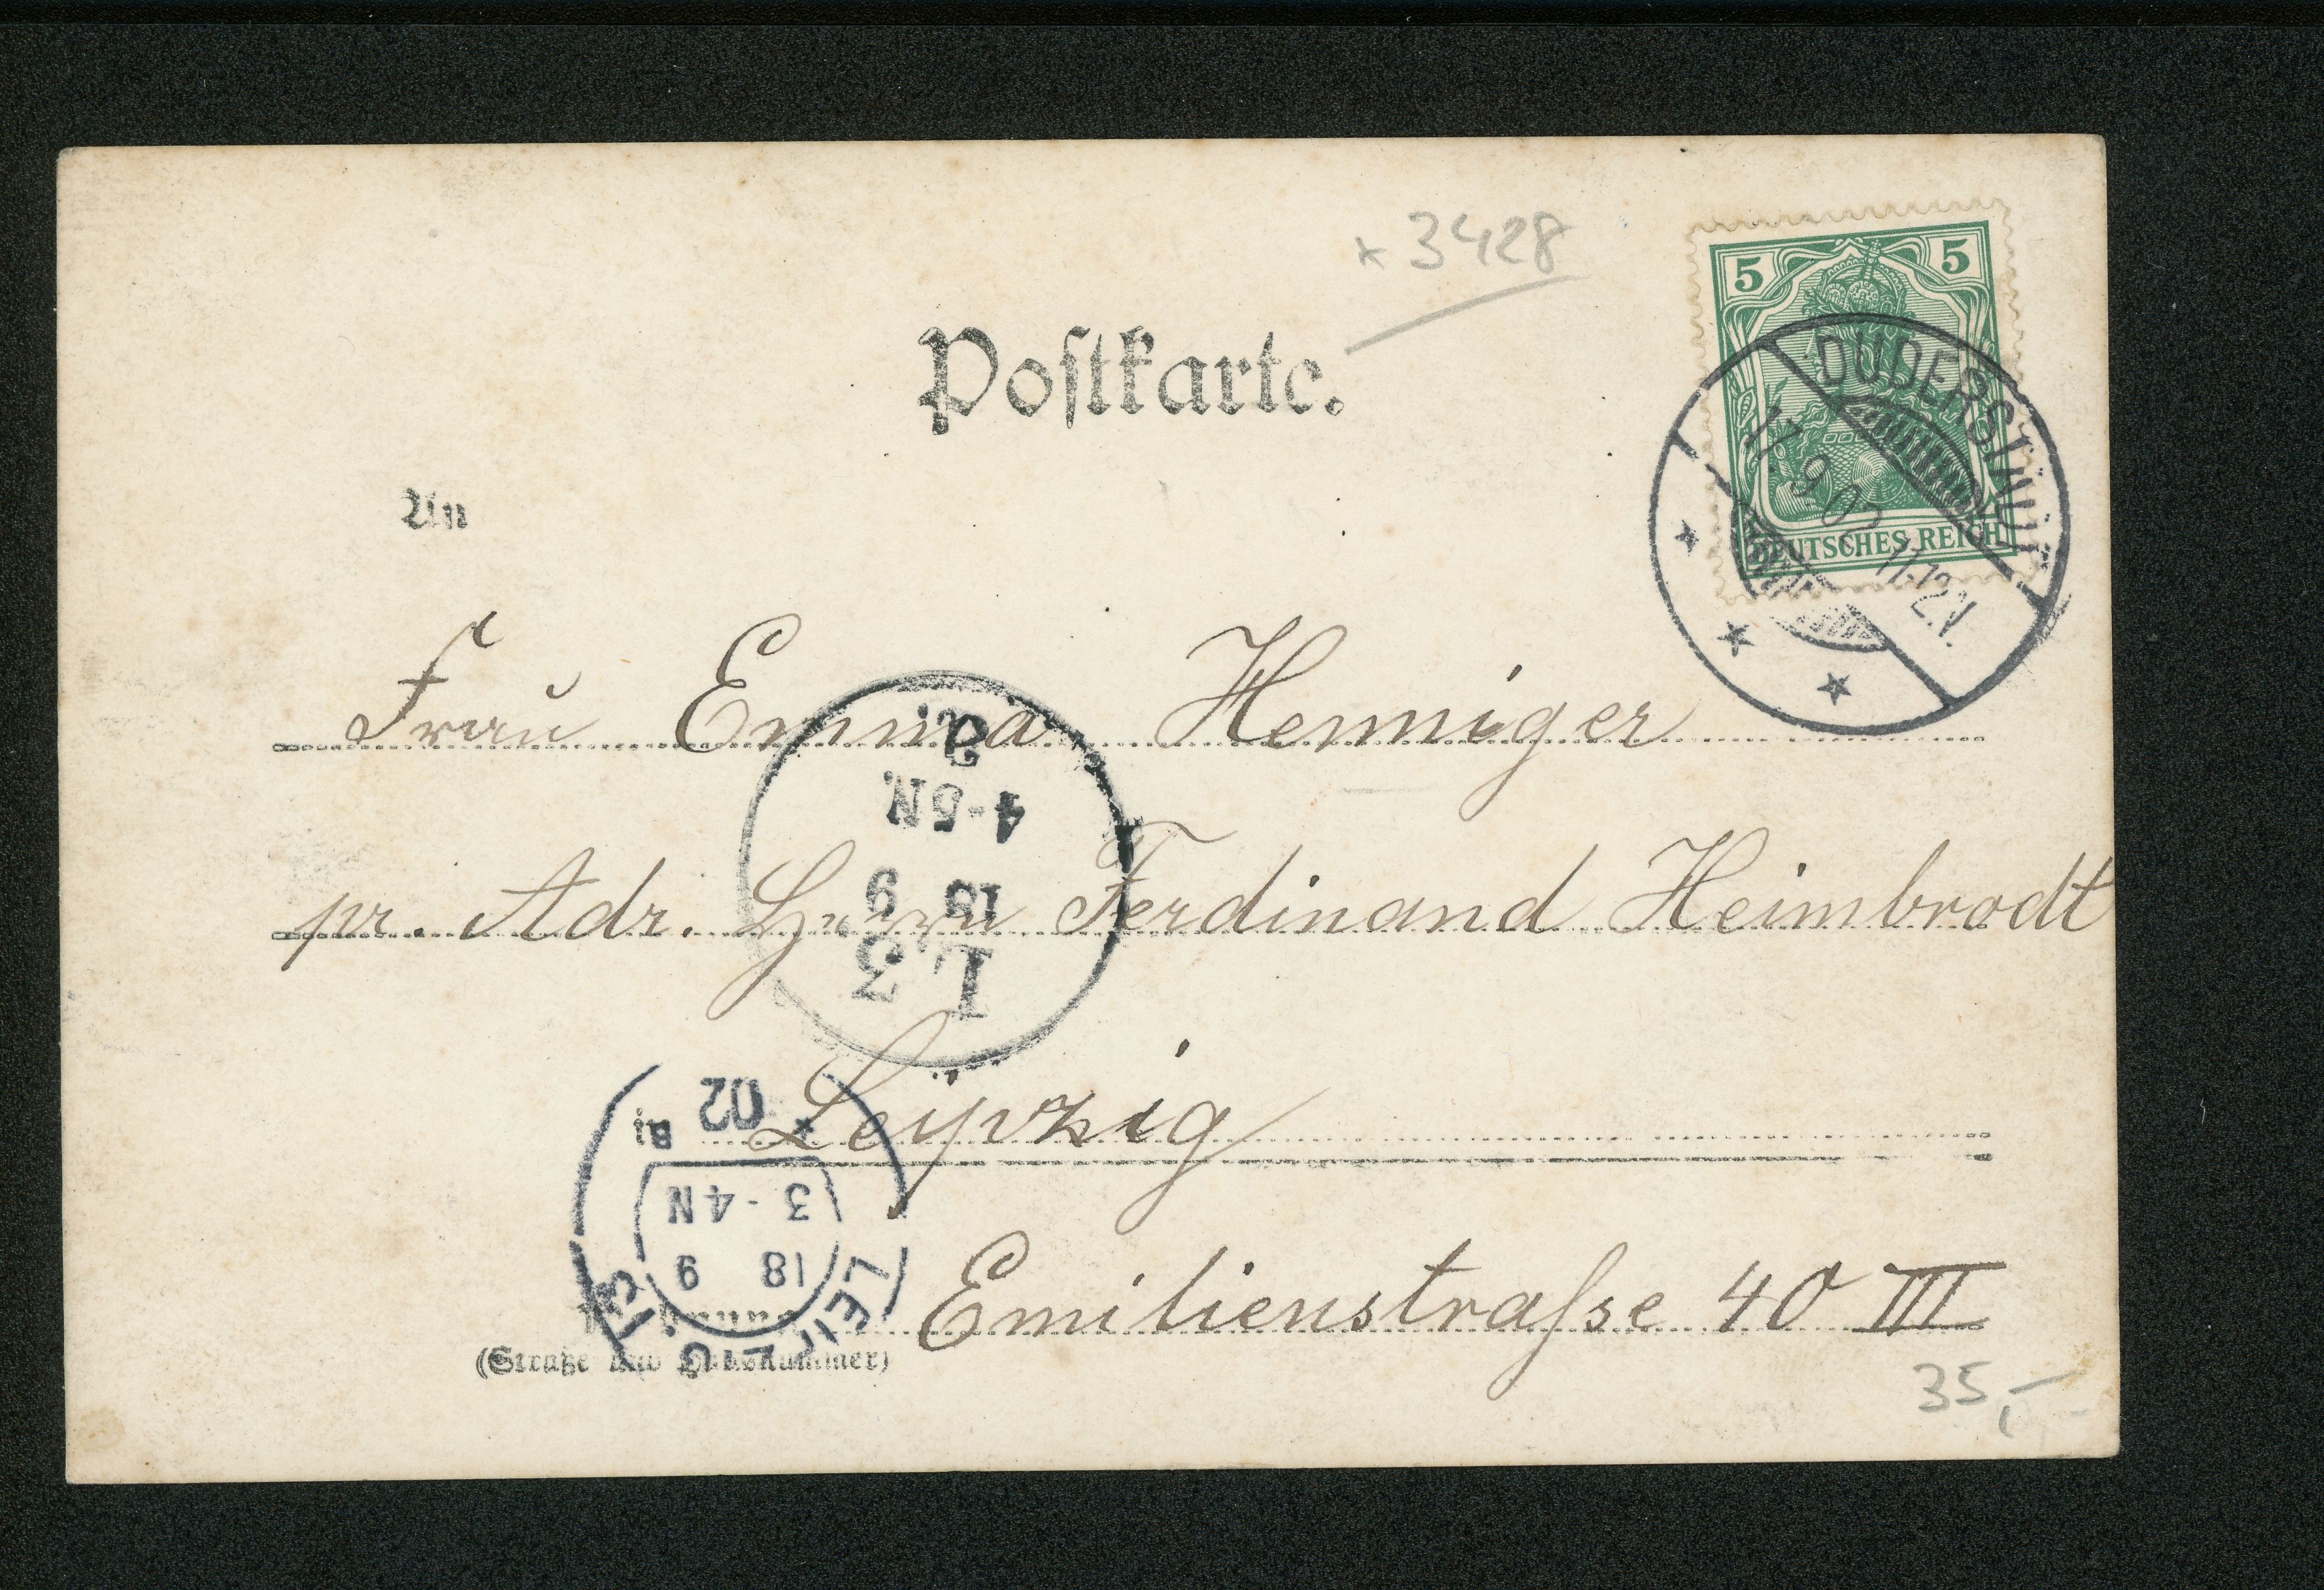 * 3428
5 5
Postkarte.
DUDERSTADT
17. 9. 02 11-12 N.
DEUTSCHES REICH
An
Frau Emma Henniger
pr. Adr. Herrn Ferdinand Heimbrodt
L 3
18 9
4-5 N.
a.
in Leipzig
LEIPZIG
18 9
3-4 N
02
Emilienstraſse 40 III
Wohnung
(Straße und Hausnummer)
35,–